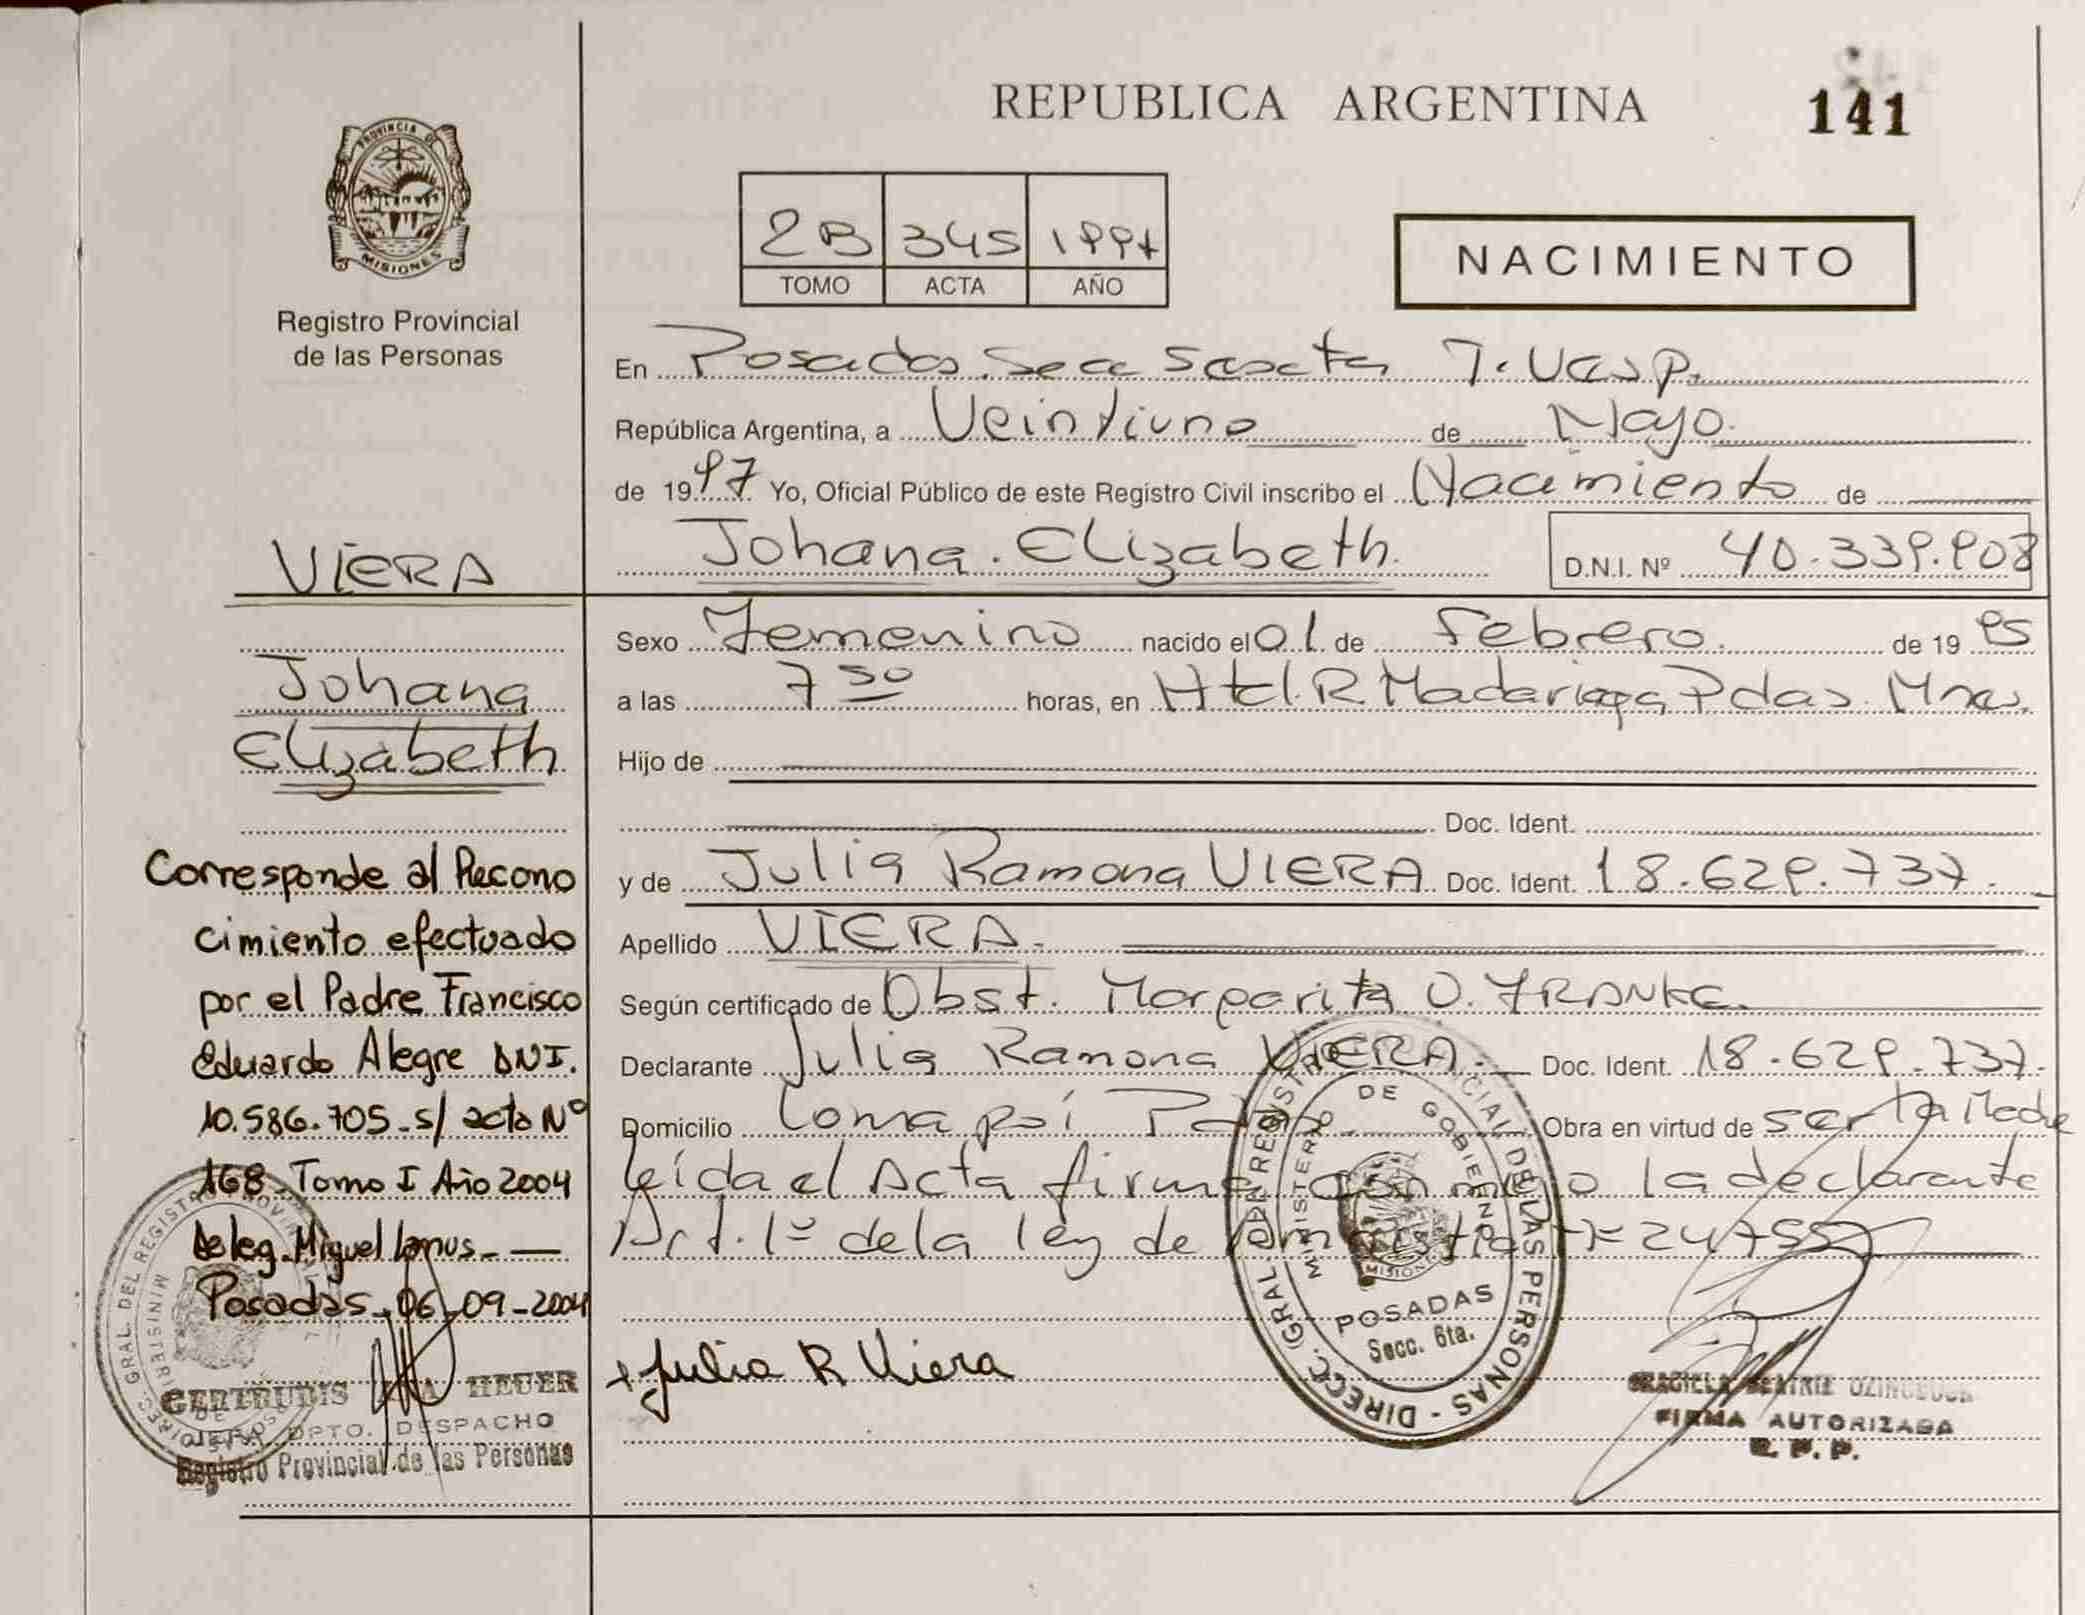 REPUBLICA ARGENTINA
141
PROVINCIA DE
MISIONES
Registro Provincial
de las Personas
2B 345 1997
TOMO ACTA AÑO
NACIMIENTO
En Posadas. Secc Sexta
República Argentina, a Veintiuno de Mayo.
de 1997 Yo, Oficial Público de este Registro Civil inscribo el Nacimiento de
Johana. Elizabeth.
D.N.I. Nº 40.339.908
VIERA
Johana
Elizabeth
Sexo Femenino nacido el 01. de Febrero. de 1995
a las 7 30 horas, en Htal. R Madariaga Pdas. Mnes.
Hijo de
Doc. Ident.
y de Julia Ramona VIERA Doc. Ident. 18.629.737.
Apellido VIERA.
Según certificado de Obst. Margarita O. FRANKE.
Declarante Julia Ramona VIERA. Doc. Ident. 18.629.737.
Domicilio Loma poí Pdas Obra en virtud de ser la Madre
leída el Acta firma conmigo la declarante
Art. 1º de la ley de Amnistia Nº 24755
Julia R Viera
Corresponde al Recono
cimiento efectuado
por el Padre Francisco
Eduardo Alegre DNI.
10.586.705. s/ acta Nº
168. Tomo I Año 2004
Deleg. Miguel Lanus.
Posadas. 06-09-2004
GERTRUDIS HEUER
DPTO. DESPACHO
Registro Provincial de las Personas
DIRECC. GRAL. DEL REGISTRO PROVINCIAL DE LAS PERSONAS
MINISTERIO DE GOBIERNO
MISIONES
POSADAS
Secc. 6ta.
GRACIELA BEATRIZ
FIRMA AUTORIZADA
R. P. P.